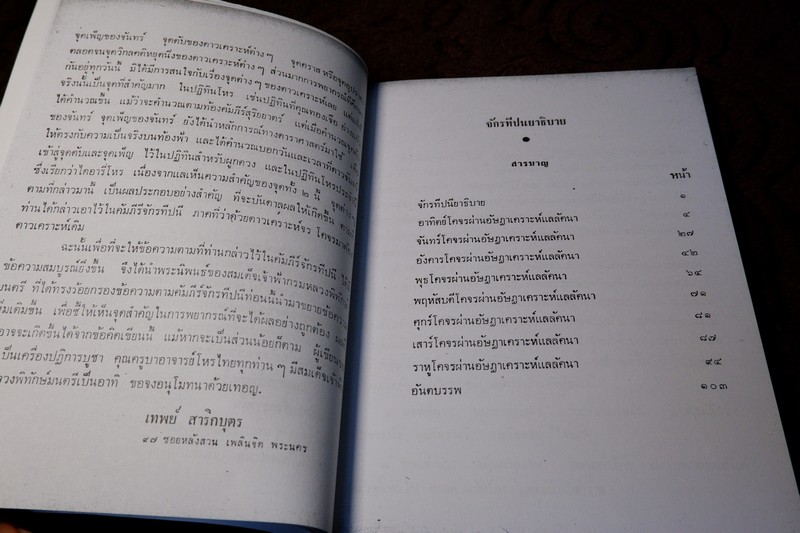 จุดเพ็ญของจันทร์ จุดดับของดาวเคราะห์ต่าง ๆ จุดตราส หรือจุด
ตลอดจนจุดวิกลคติหยุดนิ่งของดาวเคราะห์ต่าง ๆ ส่วนมากการพยากรณ์
กันอยู่ทุกวันนี้ มิได้มีการสนใจกับเรื่องจุดต่าง ๆ ของดาวเคราะห์เลย
จริงนั้นเป็นจุดที่สำคัญมาก ในปฏิทินโหร เช่นปฏิทินที่คุณทองเจือ
ได้คำนวณขึ้น แม้ว่าจะคำนวณตามท้องคัมภีร์สุริยยาตร์ แต่เมื่อคำนวณ
ของจันทร์ จุดเพ็ญของจันทร์ ยังได้นำหลักการณ์ทางดาราศาสตร์มาใช้
ให้ตรงกับความเป็นจริงบนท้องฟ้า และได้คำนวณบอกวันและเวลาที่ดาว
เข้าสู่จุดดับและจุดเพ็ญ ไว้ในปฏิทินสำหรับผูกดวง และในปฏิทินโหร
ซึ่งเรียกว่าไดอารี่โหร เนื่องจากแลเห็นความสำคัญของจุดทั้ง ๒ นี้
ตามที่กล่าวมานี้ เป็นผลประกอบอย่างสำคัญ ที่จะบันดาลผลให้เกิดขึ้น
ท่านได้กล่าวเอาไว้ในคัมภีร์จักรทีปนี ภาคที่ว่าด้วยดาวเคราะห์จร โคจร
ดาวเคราะห์เดิม
ฉะนั้นเพื่อที่จะให้ข้อความตามที่ท่านกล่าวไว้ในคัมภีร์จักรทีปนี
ข้อความสมบูรณ์ยิ่งขึ้น จึงได้นำพระนิพนธ์ของสมเด็จเจ้าฟ้ากรมหลวง
มนตรี ที่ได้ทรงร้อยกรองข้อความตามคัมภีร์จักรทีปนีท่อนนี้นำมาขยายข้อความ
เติมขึ้น เพื่อชี้ให้เห็นจุดสำคัญในการพยากรณ์ที่จะได้ผลอย่างถูกต้อง
อาจจะเกิดขึ้นได้จากข้อคิดเขียนนี้ แม้หากจะเป็นส่วนน้อยก็ตาม
เป็นเครื่องปฏิการบูชา คุณครูบาอาจารย์โหรไทยทุกท่าน ๆ มีสมเด็จเจ้า
หลวงพิทักษ์มนตรีเป็นอาทิ ขอจงอนุโมทนาด้วยเทอญ.
เทพย์ สาริกบุตร
๔๗ ซอยหลังสวน เพลินจิต พระนคร
จักรทีปนยาธิบาย
สารบาญ
หน้า
จักรทีปนียาธิบาย ๑
อาทิตย์โคจรผ่านอัษฎาเคราะห์แลลัคนา ๔
จันทร์โคจรผ่านอัษฎาเคราะห์แลลัคนา ๒๗
อังคารโคจรผ่านอัษฎาเคราะห์แลลัคนา ๔๒
พุธโคจรผ่านอัษฎาเคราะห์แลลัคนา ๖๔
พฤหัสบดีโคจรผ่านอัษฎาเคราะห์แลลัคนา ๗๑
ศุกร์โคจรผ่านอัษฎาเคราะห์แลลัคนา ๘๑
เสาร์โคจรผ่านอัษฎาเคราะห์แลลัคนา ๘๗
ราหูโคจรผ่านอัษฎาเคราะห์แลลัคนา ๙๔
อันตบรรพ ๑๐๓